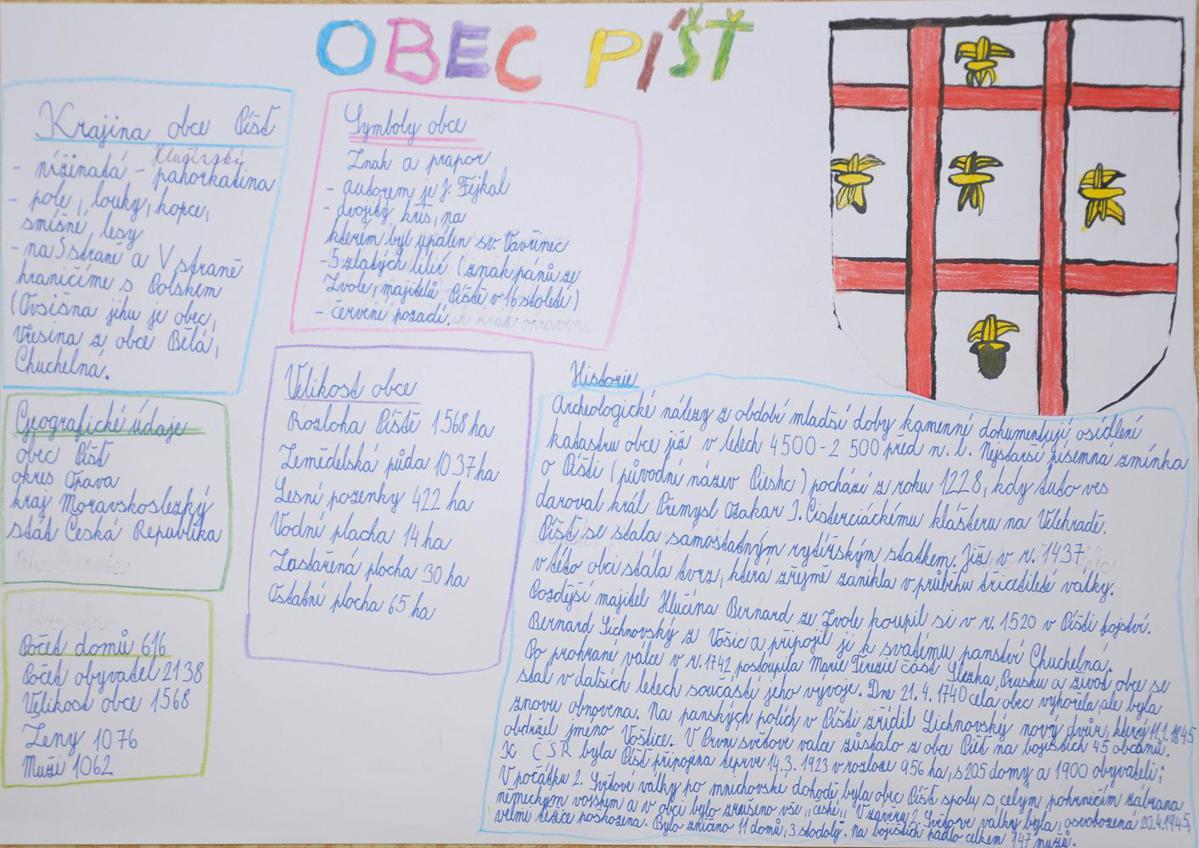 OBEC PÍŠŤ
Krajina obce Píšť
- nížinatá - Hlučínská pahorkatina
- pole, louky, kopce,
smíšné, lesy
- na S straně a V straně
hraničíme s Polskem
(Ovsišna jihu je obec,
Vřesina z obce Bělá,
Chuchelná.
Symboly obce
Znak a prapor
- autorem je J. Fejkal
- dvojitý kříš, na
kterém byl upálen sv Vavřinec
- 5 zlatých lilií (znak pánů ze
Zvole, majitelů Píště v 16 století)
- červené pozadí.
Geografické údaje
obec Píšť
okres Opava
kraj Moravskoslezký
stát Česká Republika
Počet domů 616
Počet obyvatel 2138
Velikost obce 1568
Ženy 1076
Muži 1062
Velikost obce
Rozloha Píště 1568 ha
Zemědělská půda 1037 ha
Lesní pozenky 422 ha
Vodní plocha 14 ha
Zastařená plocha 30 ha
Ostatní plocha 65 ha
Historie
Archeologické nálezy z období mladší doby kamenné dokumentují osídlení
katastru obce již v letech 4500-2 500 před n. l. Nejstarší písemná zmínka
o Píšti (původní název Pieshc) pochází z roku 1228, kdy tuto ves
daroval král Přemysl Otakar I. Cisterciáckému klášteru na Velehradě.
Píšť se stala samostatným rytířským statkem. Již v r. 1437
v této obci stála tvrz, která zřejmě zanikla v průběhu třicetileté valky.
Pozdější majitel Hlučína Bernard ze Zvole koupil si v r. 1520 v Píšti fojství.
Bernard Lichnovský z Vošic a připojil je k svatému panství Chuchelná.
Po prohrané válce v r. 1742 postoupila Marie Terezie část Slezka, Prusku a život obce se
stal v dalších letech součástí jeho vývoje. Dne 21. 4. 1740 cela obec vyhořela, ale byla
znovu obnovena. Na panských polích v Píšti zřídil Lichnovský nový dvůr, který 11.1. 1845
obdržel jméno Voštice. V První světové vala zůstalo z obce Píšť na bojištích 45 občanů.
K ČSR byla Píšť připojena teprve 14.3. 1923 v rozloze 956 ha, s 205 domy a 1900 obyvateli;
V počátku 2. Světové války po mnichovské dohodě byla obec Píšť spolu s celým pohraničím zabrana
německým vojskem a v obci bylo zrušeno vše „české„ V závěru 2. Světové války byla, osvobozená 20.4.1945,
velmi těžce poškozena. Bylo zničeno 11 domů, 3 stodoly. na bojištích padlo celkem 147 mužů.